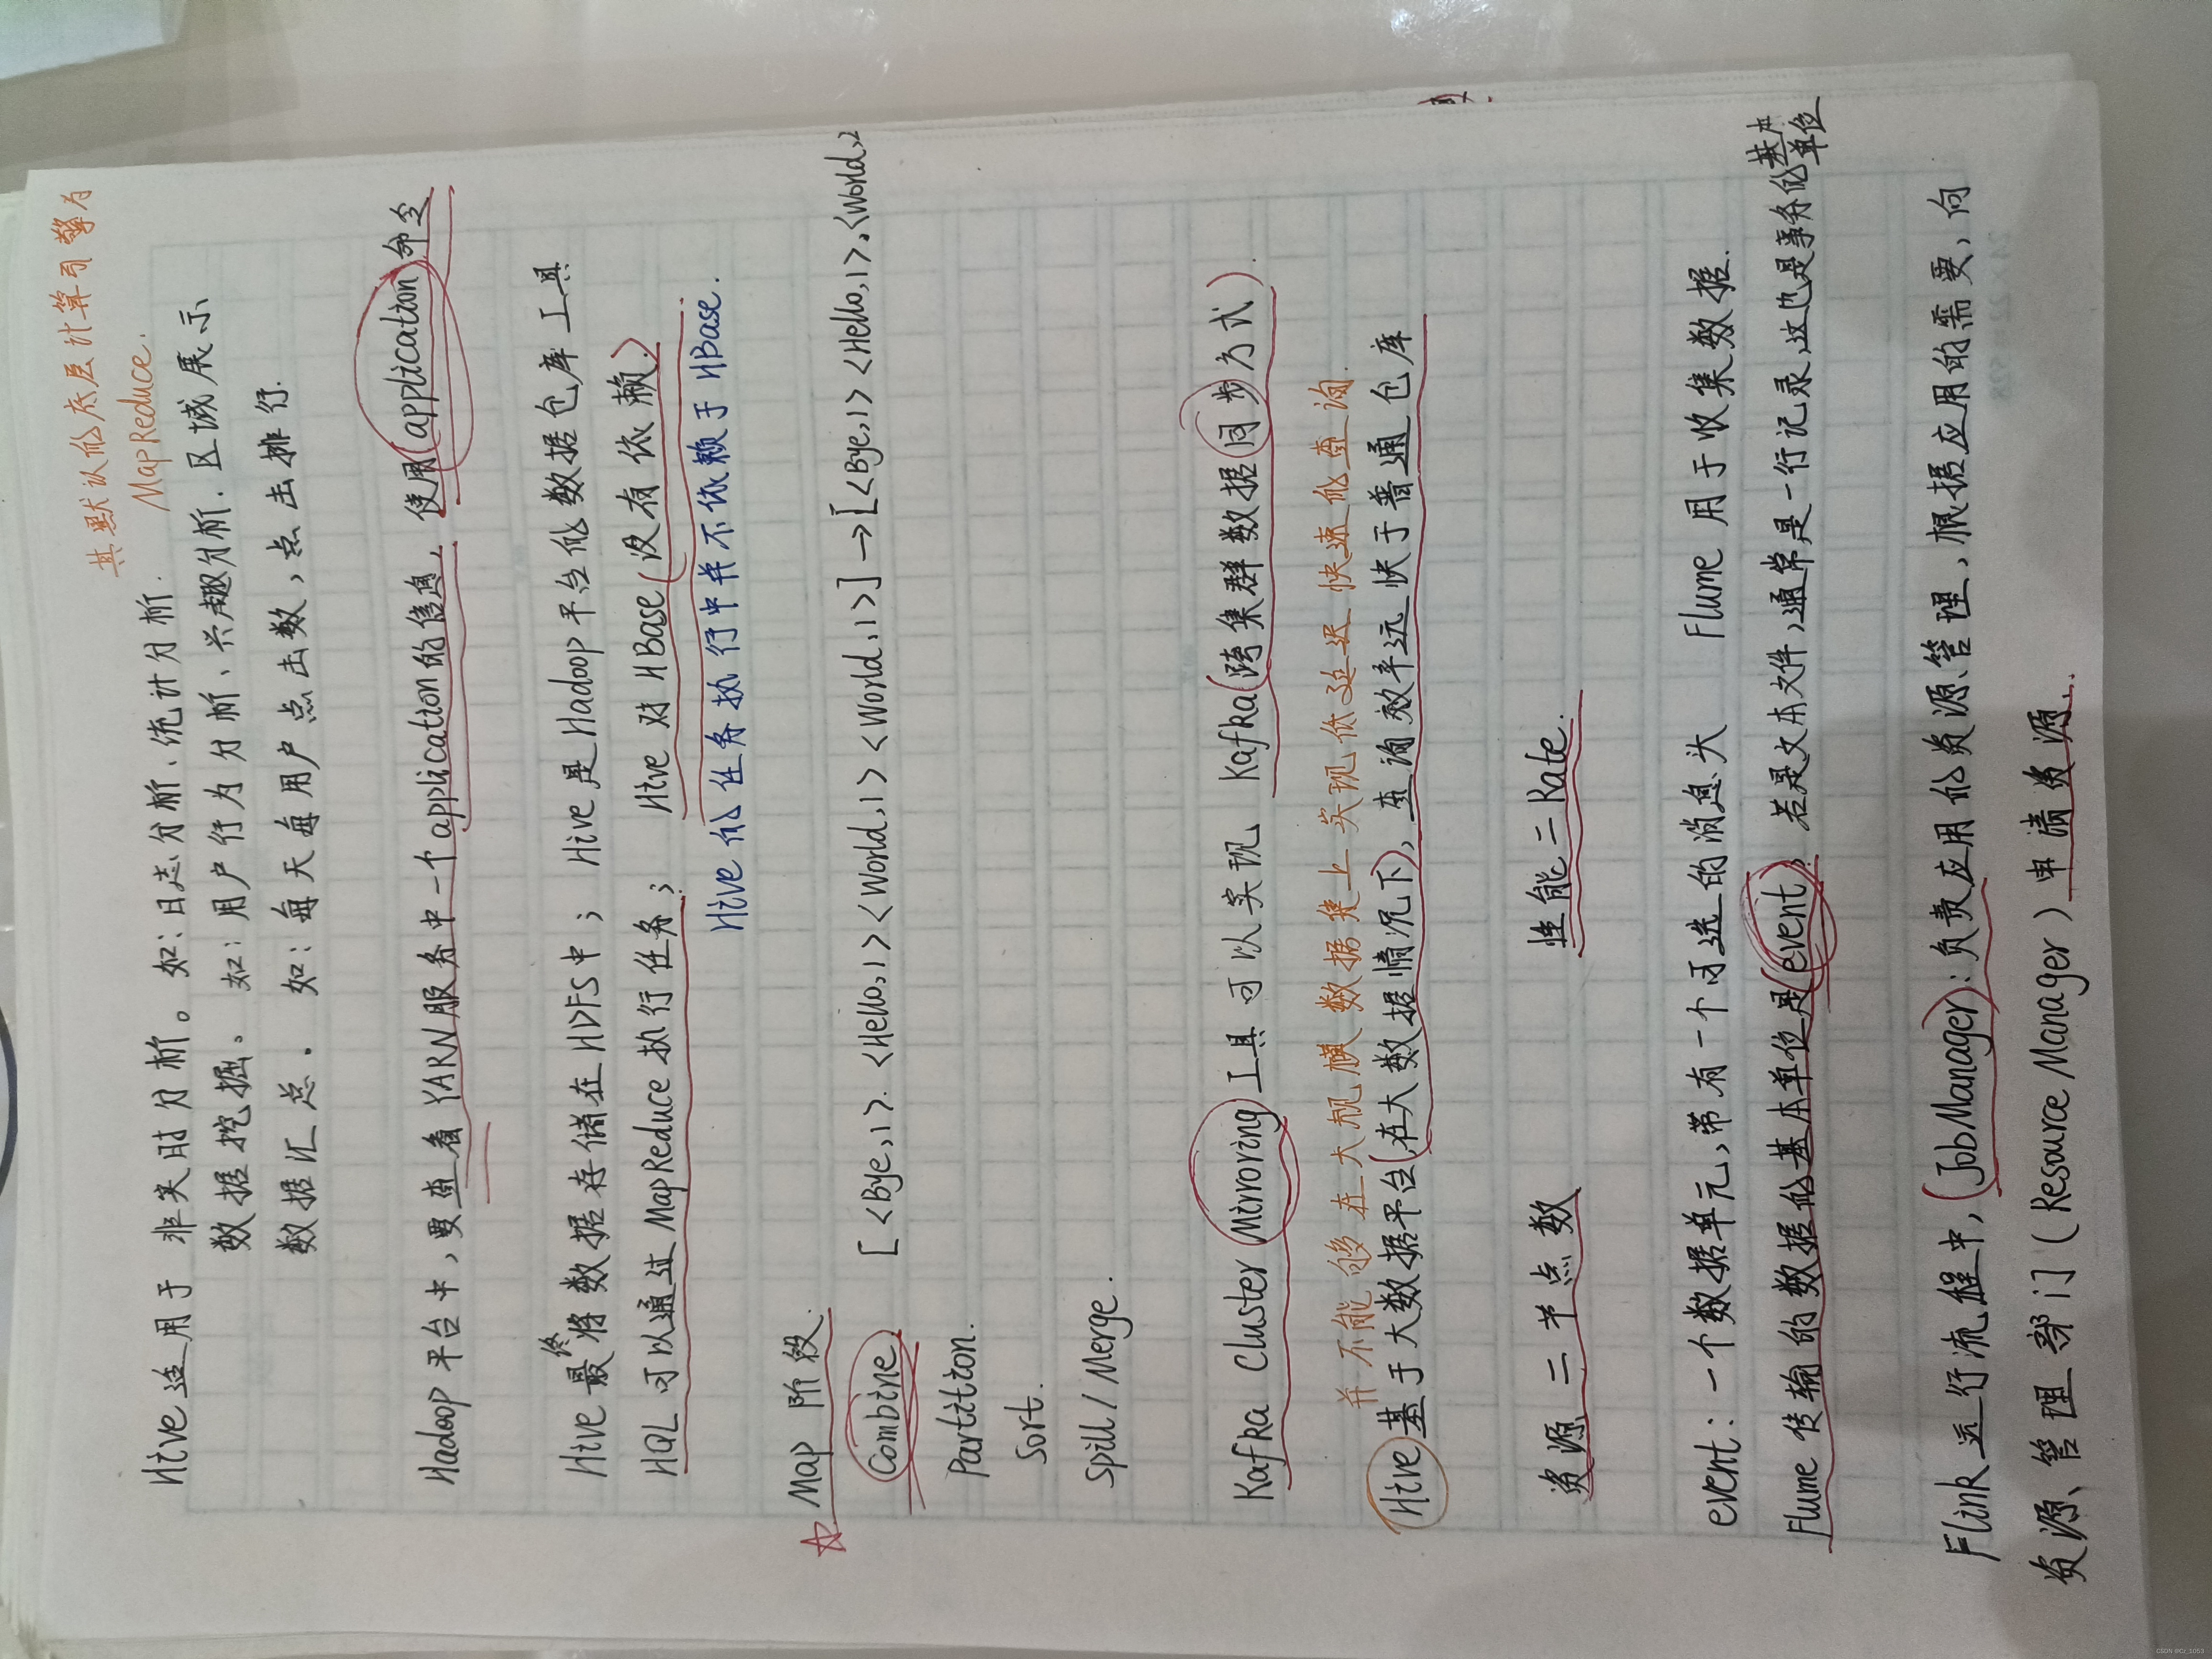 其默认的底层计算引擎为
MapReduce.
Hive适用于 非实时分析。如:日志分析、统计分析.
数据挖掘。如:用户行为分析、兴趣分析.区域展示
数据汇总。如:每天每用户点击数,点击排行.
Hadoop平台中,要查看YARN服务中一个application的信息,使用(application)命令
Hive最终将数据存储在HDFS中; Hive是Hadoop平台的数据仓库工具
HQL可以通过MapReduce执行任务; Hive对HBase(没有依赖).
Hive的任务执行中并不依赖于HBase.
☆ Map阶段.
Combine [<Bye,1>.<Hello,1><World,1><World,1>]→[<Bye,1><Hello,1>,<World,2
Partition.
Sort.
Spill/Merge.
Kafka Cluster Mirroring工具可以实现 Kafka(跨集群数据同步方式).
并不能够在大规模数据集上实现低延迟快速的查询.
Hive基于大数据平台(在大数据情况下),查询效率远快于普通仓库
资源二节点数 性能二Rate.
event:一个数据单元,带有一个可选的消息头 Flume用于收集数据.
Flume传输的数据的基本单位是(event). 若是文本文件,通常是一行记录,这也是事务的基本单位
Flink运行流程中,(JobManager):负责应用的资源管理,根据应用的需要,向
资源、管理部门(Resource Manager)申请资源.